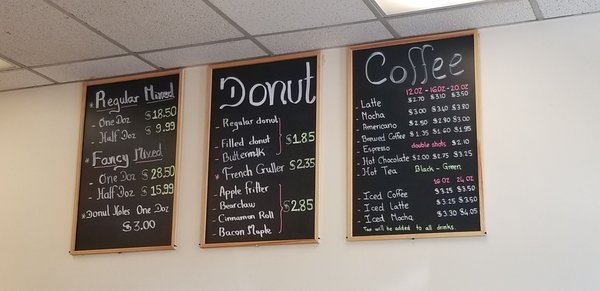 * Regular Mixed
- One Doz $18.50
- Half Doz $9.99
* Fancy Mixed
- One Doz $28.50
- Half Doz $15.99
* Donut Holes One Doz
$3.00
Donut
- Regular donut
- Filled donut $1.85
- Buttermilk
* French Cruller $2.35
- Apple fritter
- Bearclaw $2.85
- Cinnamon Roll
- Bacon Maple
Coffee
12oz - 16oz - 20oz
- Latte $2.70 $3.10 $3.50
- Mocha $3.00 $3.40 $3.80
- Americano $2.50 $2.80 $3.00
- Brewed Coffee $1.35 $1.60 $1.95
- Espresso double shots $2.10
- Hot Chocolate $2.00 $2.75 $3.25
- Hot Tea Black - Green
16oz 24oz
- Iced Coffee $3.25 $3.50
- Iced Latte $3.25 $3.50
- Iced Mocha $3.30 $4.05
Tax will be added to all drinks.